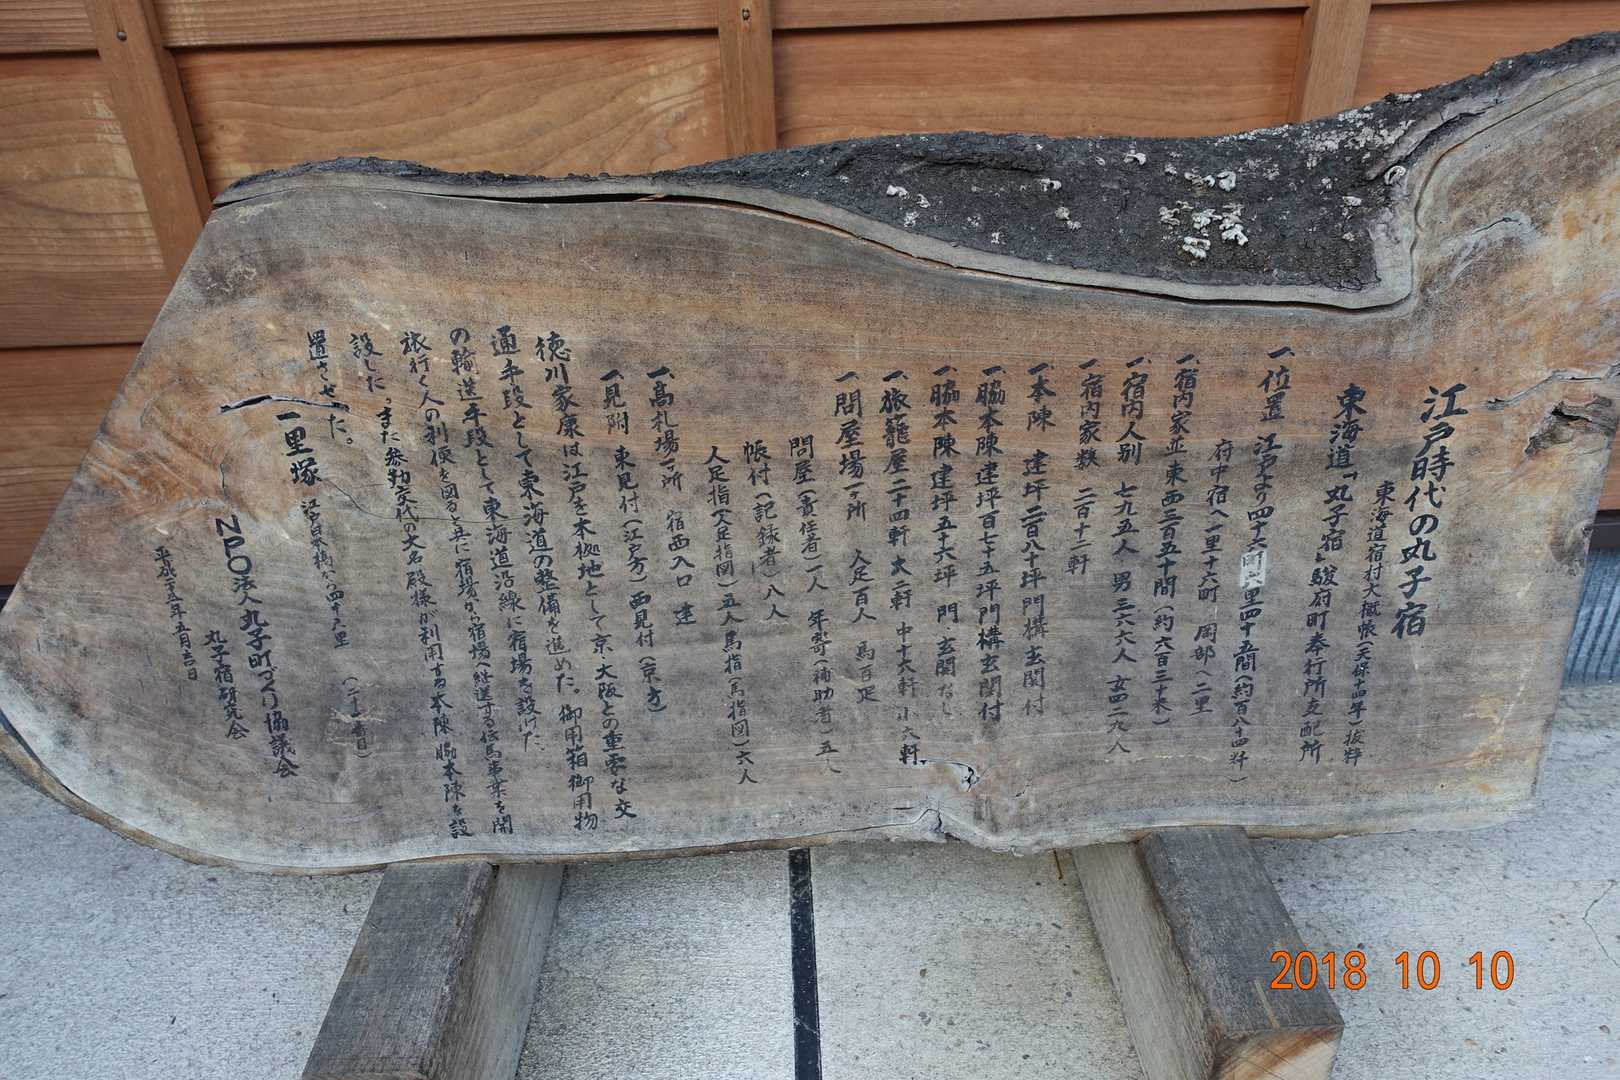 江戸時代の丸子宿
東海道宿村大概帳(天保十四年)抜粋
東海道「丸子宿」駿府町奉行所支配所
一、位置 江戸より四十六里四十五間(約百八十四粁)
府中宿へ一里十六町 岡部へ二里
一、宿内家並 東西三百五十間(約六百三十米)
一、宿内人別 七九五人 男三六六人 女四二九人
一、宿内家数 二百十二軒
一、本陳 建坪二百八十坪 門構玄関付
一、脇本陳 建坪百七十五坪 門構玄関付
一、脇本陳 建坪五十六坪 門、玄関なし
一、旅籠屋二十四軒 大二軒 中十六軒 小六軒
一、問屋場一ヶ所 人足百人 馬百疋
問屋(責任者)一人 年寄(補助者)五人
帳付(記録者)八人
人足指(人足指図)五人 馬指(馬指図)六人
一、高札場一ヶ所 宿西入口 建
一、見附 東見付(江戸方) 西見付(京方)
徳川家康は江戸を本拠地として京、大阪との重要な交
通手段として東海道の整備を進めた。御用箱 御用物
の輸送手段として東海道沿線に宿場を設けた。
旅行く人の利便を図ると共に宿場から宿場へ継送する伝馬事業を開
設した。また参勤交代の大名、殿様が利用する本陳、脇本陳を設
置させた。
一里塚 江戸日本橋から四十六里 (二十一番目)
NPO法人丸子町づくり協議会
丸子宿研究会
平成二十五年五月吉日
2018 10 10